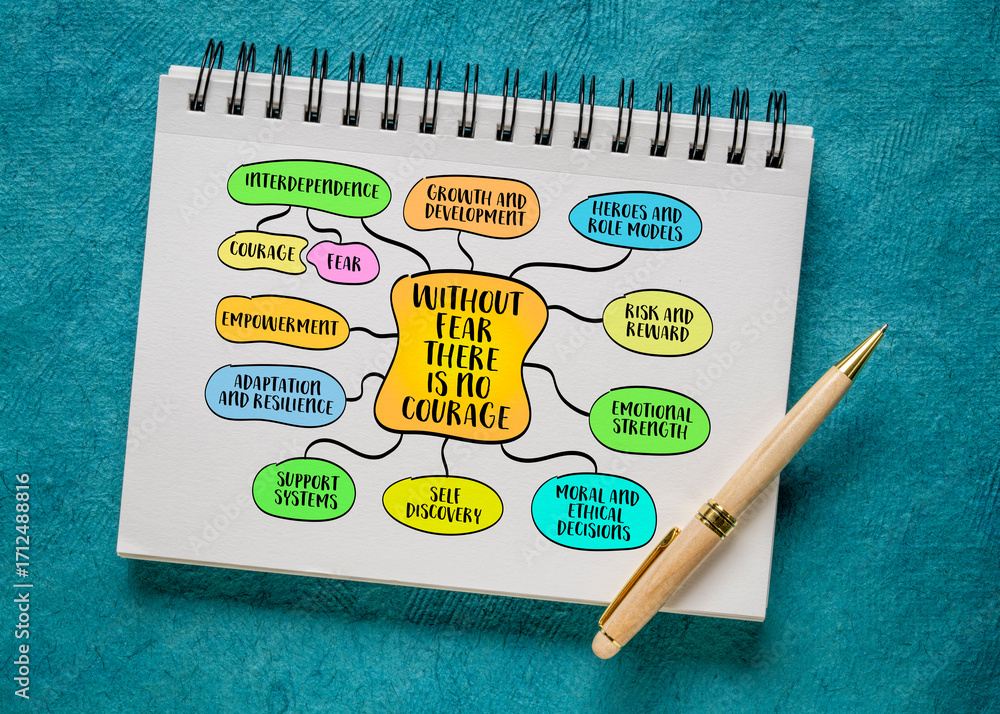 INTERDEPENDENCE
COURAGE
FEAR
GROWTH AND
DEVELOPMENT
HEROES AND
ROLE MODELS
WITHOUT
FEAR
THERE
IS NO
COURAGE
EMPOWERMENT
RISK AND
REWARD
ADAPTATION
AND RESILIENCE
EMOTIONAL
STRENGTH
SUPPORT
SYSTEMS
SELF
DISCOVERY
MORAL AND
ETHICAL
DECISIONS
Adobe Stock | #1712488816
Adobe Stock